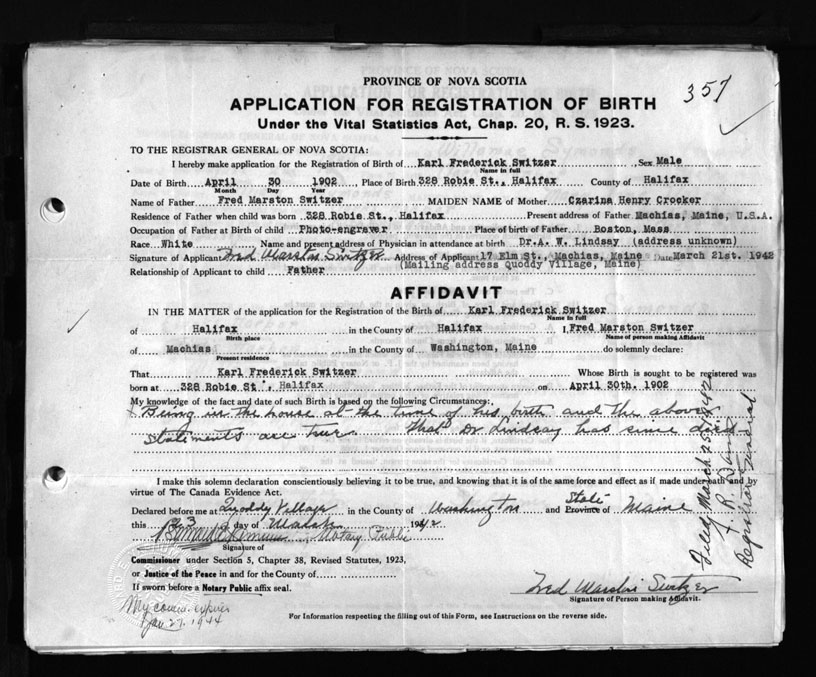 357
PROVINCE OF NOVA SCOTIA
APPLICATION FOR REGISTRATION OF BIRTH
Under the Vital Statistics Act, Chap. 20, R. S. 1923.
TO THE REGISTRAR GENERAL OF NOVA SCOTIA:
I hereby make application for the Registration of Birth of Karl Frederick Switzer Sex Male
Name in full
Date of Birth April 30 1902, Place of Birth 328 Robie St., Halifax County of Halifax
Month Day Year
Name of Father Fred Marston Switzer MAIDEN NAME of Mother Czarina Henry Crocker
Residence of Father when child was born 328 Robie St., Halifax Present address of Father Machias, Maine, U.S.A.
Occupation of Father at Birth of child Photo-engraver Place of birth of Father Boston, Mass
Race White Name and present address of Physician in attendance at birth Dr. A. W. Lindsay (address unknown)
Signature of Applicant Fred Marston Switzer Address of Applicant 17 Elm St., Machias, Maine Date March 21st. 1942
(Mailing address Quoddy Village, Maine)
Relationship of Applicant to child Father
AFFIDAVIT
IN THE MATTER of the application for the Registration of the Birth of Karl Frederick Switzer
Name in full
of Halifax in the County of Halifax I, Fred Marston Switzer
Birth place Name of person making Affidavit
of Machias in the County of Washington, Maine do solemnly declare:
Present residence
That Karl Frederick Switzer Whose Birth is sought to be registered was
born at 328 Robie St., Halifax on April 30th. 1902
My knowledge of the fact and date of such Birth is based on the following Circumstances:
Being in the house at the time of his birth and the above
statements are true. That Dr Lindsay has since died
I make this solemn declaration conscientiously believing it to be true, and knowing that it is of the same force and effect as if made under oath and by
virtue of The Canada Evidence Act.
Declared before me at Quoddy Village in the County of Washington and State Province of Maine
this 23 day of March 1942
Notary Public
Signature of
Commissioner under Section 5, Chapter 38, Revised Statutes, 1923,
or Justice of the Peace in and for the County of
If sworn before a Notary Public affix seal.
My comm. expires
Jan 27, 1944
Fred Marston Switzer
Signature of Person making Affidavit.
For Information respecting the filling out of this Form, see Instructions on the reverse side.
Filed, March 25, 1942
Registrar General